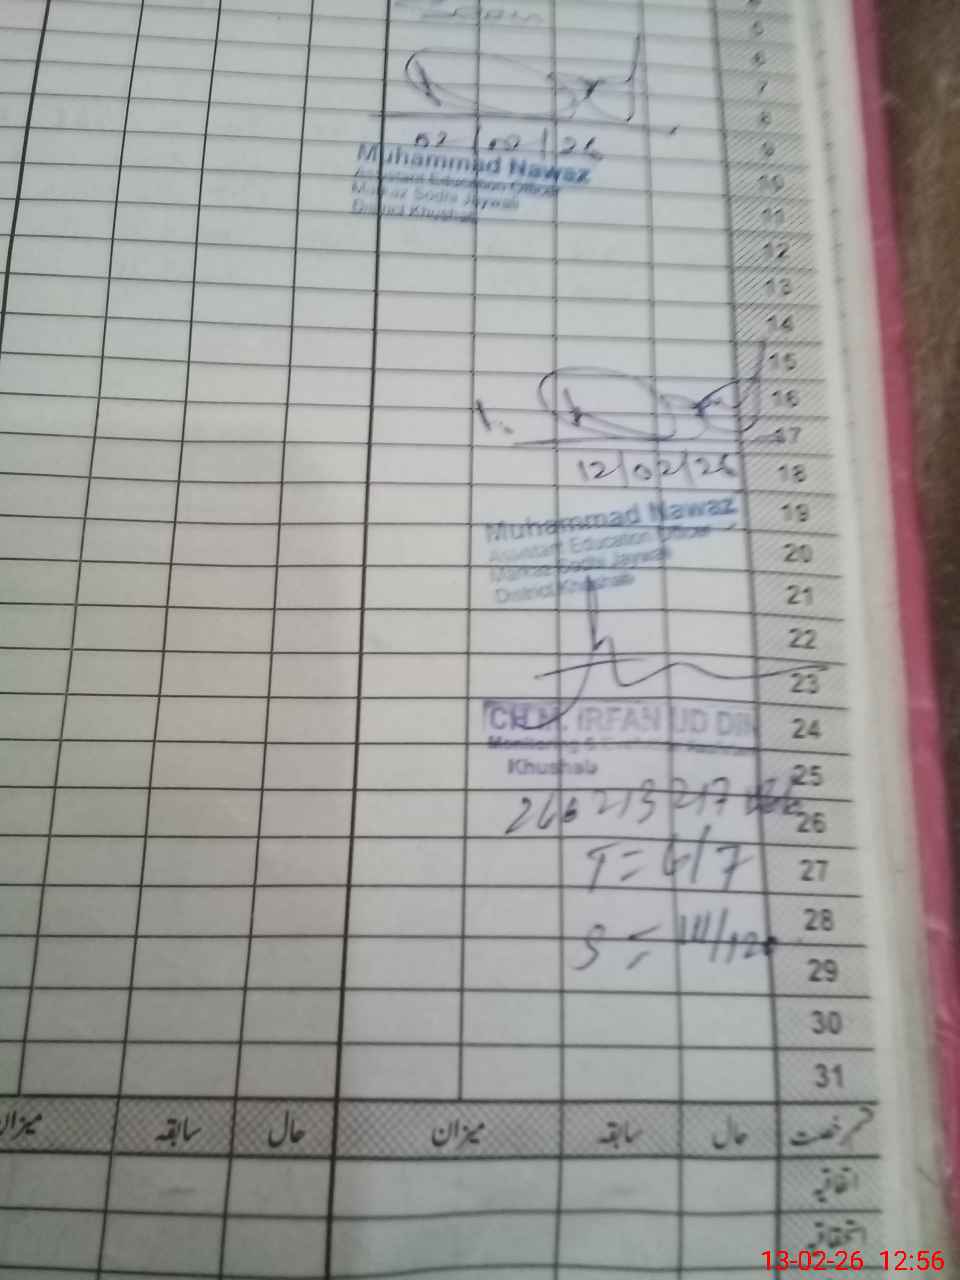 5
6
7
8
02/02/26
9
Muhammad Nawaz
Assistant Education Officer
Markaz Sodhi Jaywali
District Khushab
10
11
12
13
14
15
16
17
12/02/26
18
Muhammad Nawaz
Assistant Education Officer
Markaz Sodhi Jaywali
District Khushab
19
20
21
22
23
CH.M. IRFAN UD DIN
Monitoring &
Khushab
24
25
26
T = 6/7
27
28
S =
29
30
31
میزان سابقہ حال میزان سابقہ حال
اتفاقیہ
استحقاقیہ
13-02-26 12:56